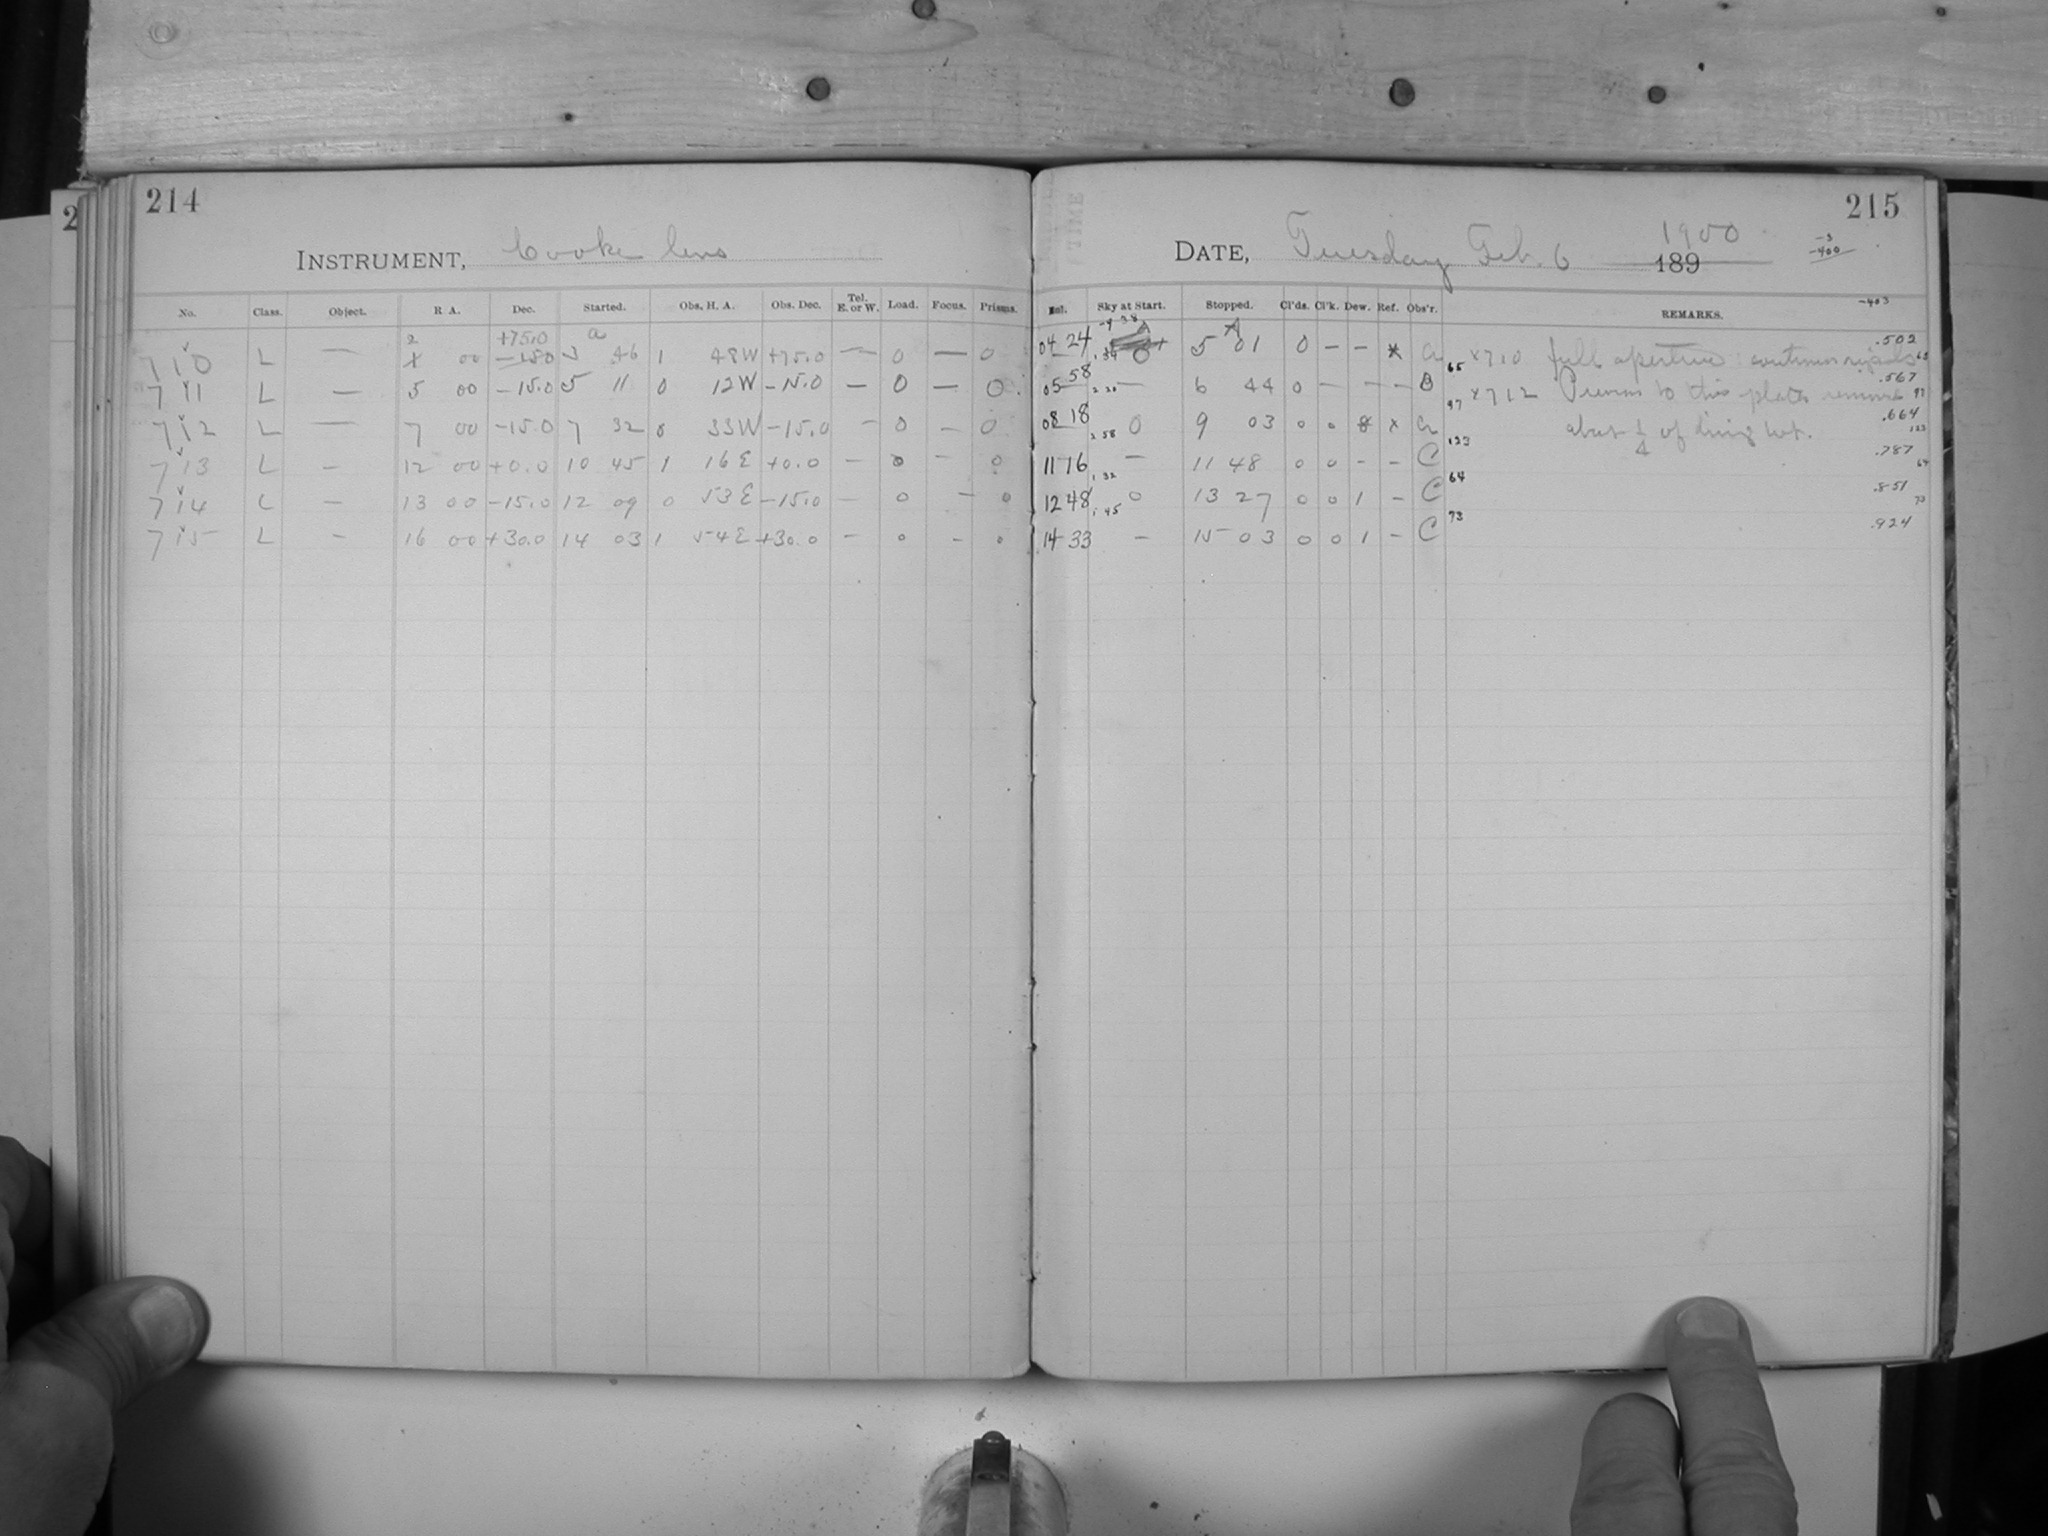 214
INSTRUMENT, Cooke lens
No. Class. Object. R A. Dec. Started. Obs. H. A. Obs. Dec. Tel. E. or W. Load. Focus. Prisms.
2 +75.0 a
710 L — 00 46 1 48W +75.0 — 0 — 0
711 L — 5 00 -15.0 5 11 0 12W -15.0 — 0 — 0
712 L — 7 00 -15.0 7 32 0 33W -15.0 — 0 — 0
713 L — 12 00 +0.0 10 45 1 16E +0.0 — 0 — 0
714 L — 13 00 -15.0 12 09 0 53E -15.0 — 0 — 0
715 L — 16 00 +30.0 14 03 1 54E +30.0 — 0 — 0
2
215
TIME
DATE, Tuesday Feb. 6 1900 189
-3
-400
-403
Sky at Start. Stopped. Cl'ds. Cl'k. Dew. Ref. Obs'r. REMARKS.
04 24 0 5 01 0 — — x 65 x710 full aperture: continuous .502
05 58 — 6 44 0 — — — B 97 x712 Previous to this plate .567
08 18 2 58 0 9 03 0 0 x 133 about 1/4 of wt. .664
11 16 1 32 — 11 48 0 0 - - C 64 .787
12 48 1 45 0 13 27 0 0 1 - C 73 .851
14 33 — 15 03 0 0 1 - C .924